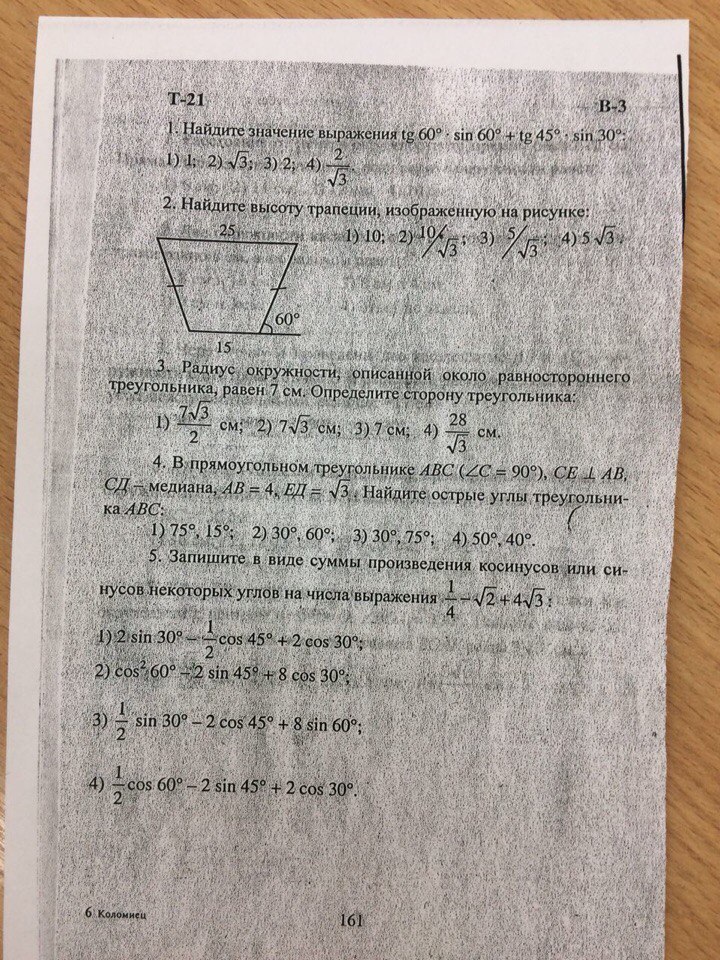 Т-21
В-3
1. Найдите значение выражения tg 60° · sin 60° + tg 45° · sin 30°:
1) 1; 2) √3; 3) 2; 4) 2/√3.
2. Найдите высоту трапеции, изображенную на рисунке:
25
1) 10; 2) 10/√3; 3) 5/√3; 4) 5√3.
60°
15
3. Радиус окружности, описанной около равностороннего
треугольника, равен 7 см. Определите сторону треугольника:
1) 7√3/2 см; 2) 7√3 см; 3) 7 см; 4) 28/√3 см.
4. В прямоугольном треугольнике ABC (∠C = 90°), CE ⊥ AB,
СД – медиана, AB = 4, ЕД = √3. Найдите острые углы треугольни-
ка ABC:
1) 75°, 15°; 2) 30°, 60°; 3) 30°, 75°; 4) 50°, 40°.
5. Запишите в виде суммы произведения косинусов или си-
нусов некоторых углов на числа выражения 1/4 – √2 + 4√3:
1) 2 sin 30° – 1/2 cos 45° + 2 cos 30°;
2) cos² 60° – 2 sin 45° + 8 cos 30°;
3) 1/2 sin 30° – 2 cos 45° + 8 sin 60°;
4) 1/2 cos 60° – 2 sin 45° + 2 cos 30°.
6 Коломиец
161